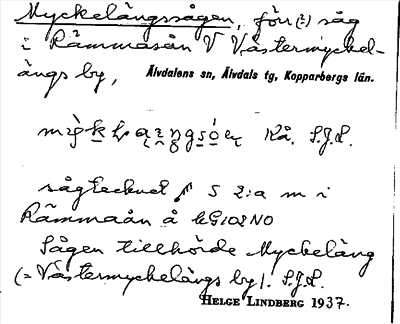 Myckelängssågen, förr (?) såg
i Rämmasån V Västermyckel-
ängs by, Älvdalens sn, Älvdals tg, Kopparbergs län.
Kå. S.J.L.
sågtecknet S 2:a m i
Rämmaån å kG102NO
Sågen tillhörde Myckeläng
(= Västermyckelängs by). S.J.L.
HELGE LINDBERG 1937.